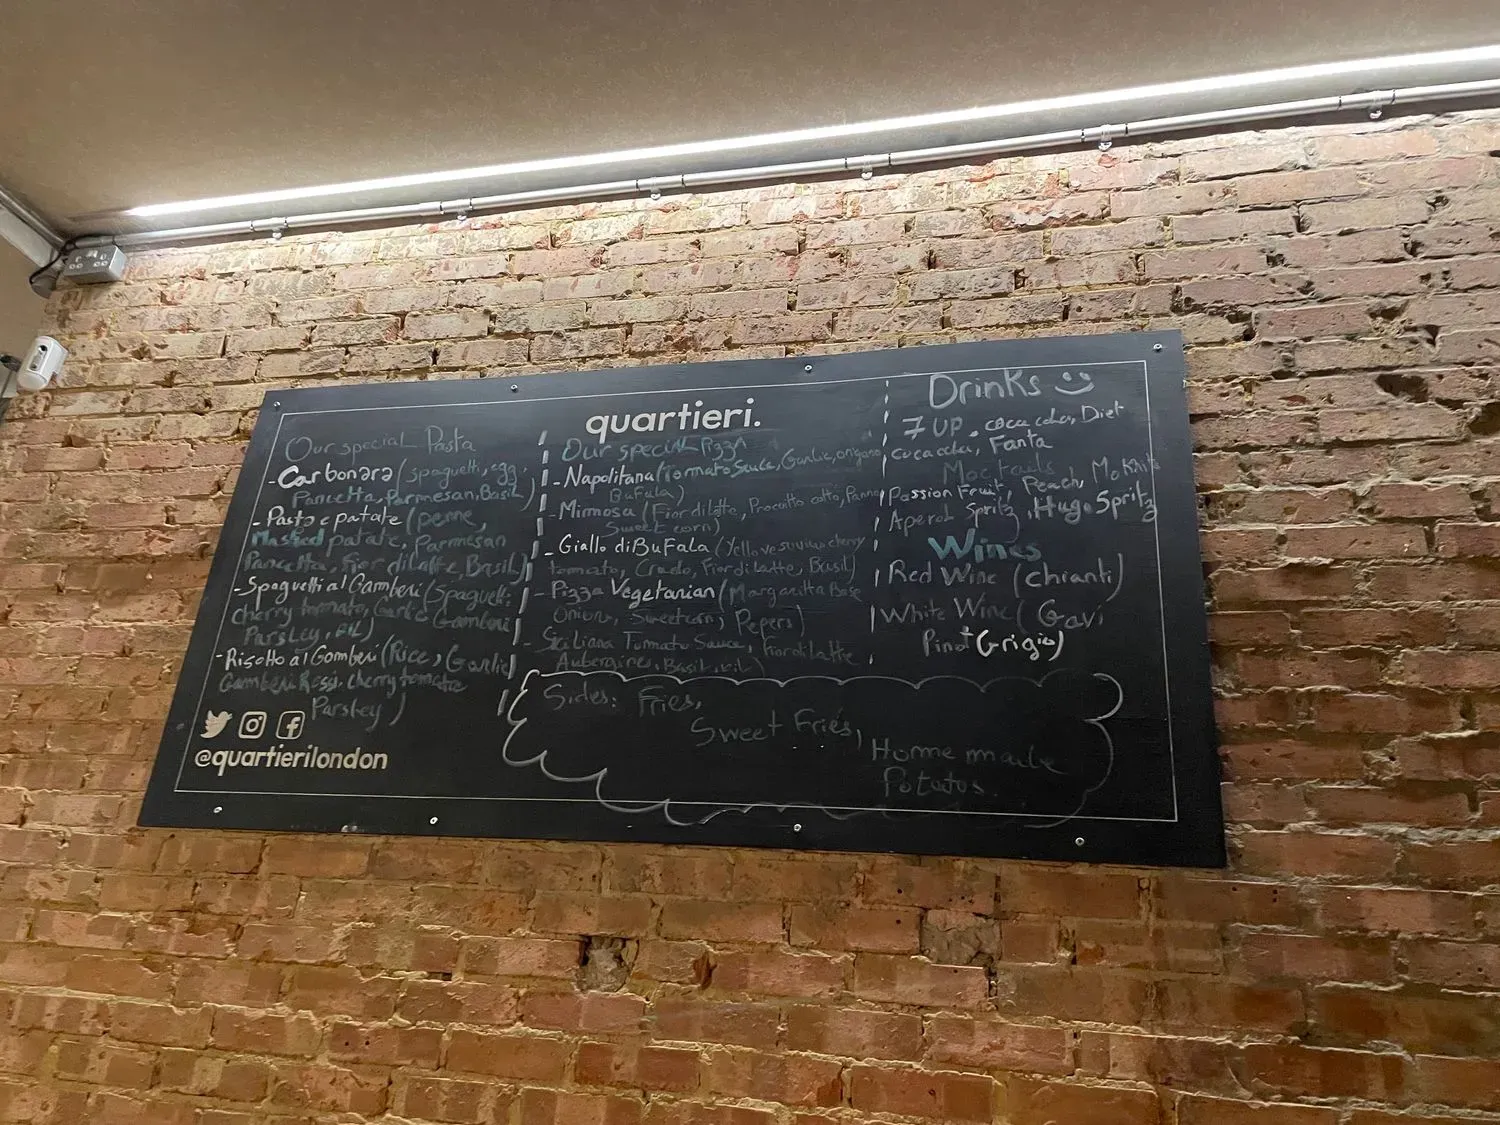 quartieri.
Our special Pasta
- Carbonara (spaghetti, egg,
Pancetta, Parmesan, Basil)
- Pasta e patate (penne,
Mashed patate, Parmesan
Pancetta, Fior di latte, Basil)
- Spaghetti al Gamberi (Spaghetti
cherry tomato, Garlic Gamberi
Parsley,
- Risotto al Gamberi (Rice, Garlic
Gamberi Rossi, cherry tomato
Parsley)
@quartierilondon
Our special Pizza
- Napolitana (Tomato Sauce, Garlic, origano
Bufala)
- Mimosa (Fior di latte, Procuitto cotto, Panna
Sweet corn)
- Giallo di BuFala (Yellow vesuvius cherry
tomato, Crudo, Fior di latte, Basil)
- Pizza Vegetarian (Margaritta Base
Onion, Sweetcorn, Pepers)
- Siciliana Tomato Sauce, Fiordilatte
Aubergines, Basil,
Drinks
7 UP, coca cola, Diet
coca cola, Fanta
Moctails
Passion Fruit, Peach,
Aperol Spritz, Hugo Spritz
Wines
Red Wine (Chianti)
White Wine (Gavi
Pinot Grigio)
Sides: Fries,
Sweet Fries,
Home made
Potatos.